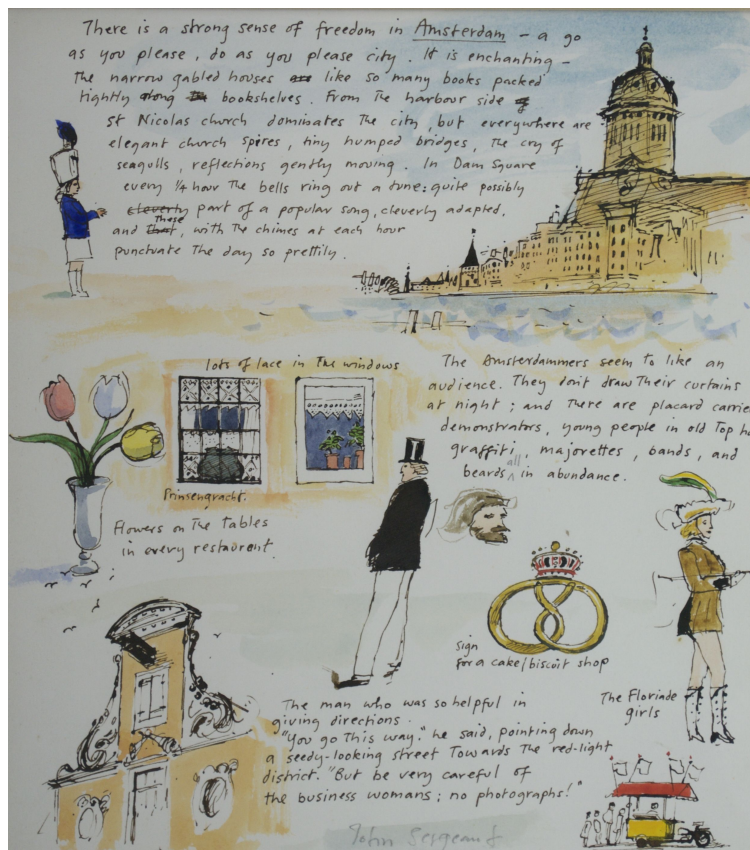 There is a strong sense of freedom in Amsterdam - a go
as you please, do as you please city. It is enchanting -
the narrow gabled houses are like so many books packed
tightly along bookshelves. From the harbour side of
St Nicolas church dominates the city, but everywhere are
elegant church spires, tiny humped bridges, the cry of
seagulls, reflections gently moving. In Dam Square
every ¼ hour the bells ring out a tune: quite possibly
cleverly part of a popular song, cleverly adapted.
and that These, with the chimes at each hour
punctuate the day so prettily.
lots of lace in the windows
Prinsengracht.
Flowers on the tables
in every restaurant.
The Amsterdammers seem to like an
audience. They don't draw their curtains
at night; and there are placard carrie
demonstrators, young people in old top ha
graffiti, majorettes, bands, and
beards all in abundance.
sign
for a cake/biscuit shop
The Floriade
girls
The man who was so helpful in
giving directions.
"You go this way." he said, pointing down
a seedy-looking street towards the red-light
district. "But be very careful of
the business womans; no photographs!"
John Sergeant